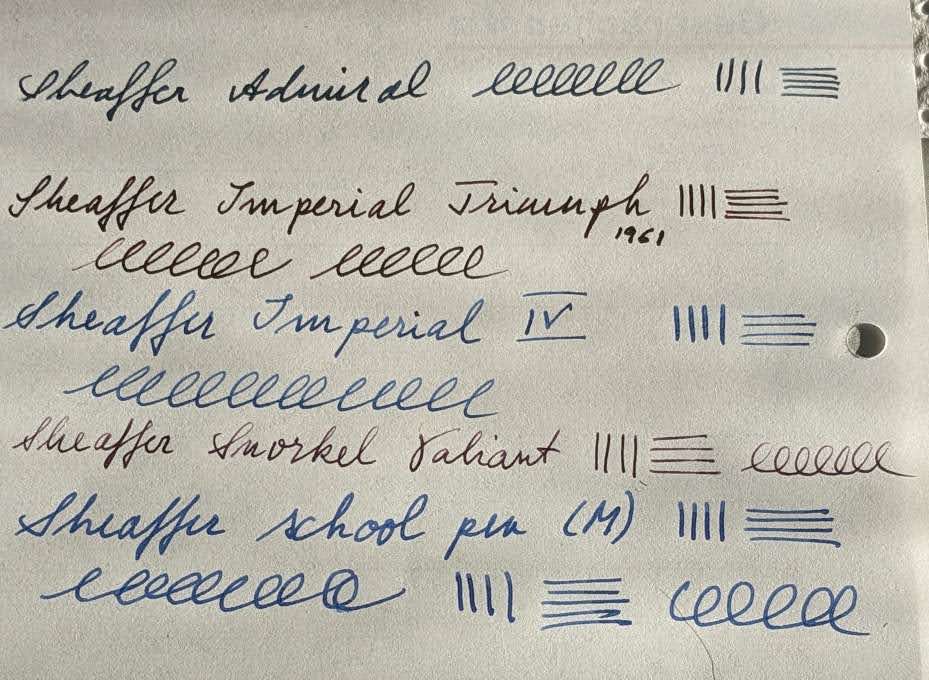 Sheaffer Admiral
Sheaffer Imperial Triumph
1961
Sheaffer Imperial IV
Sheaffer Snorkel Valiant
Sheaffer school pen (M)